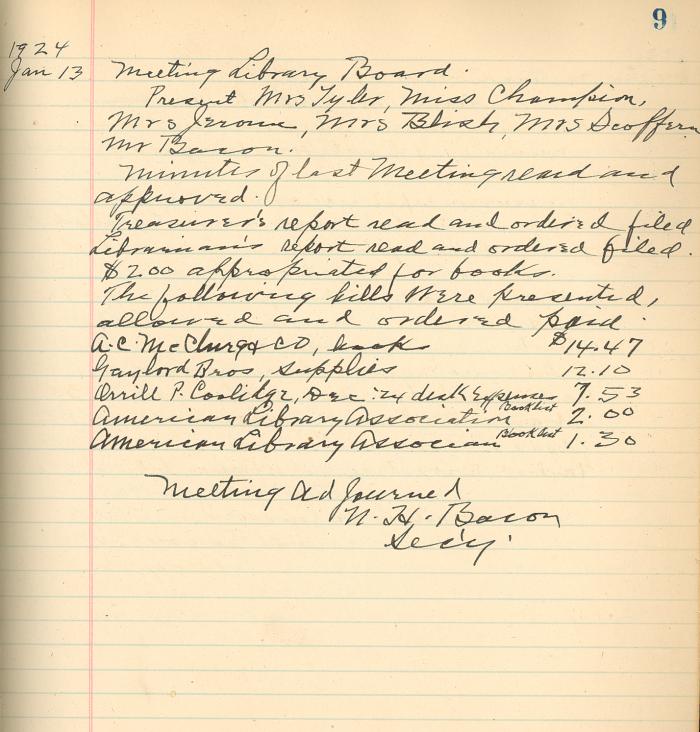 9
1924
Jan 13 Meeting Library Board.
Present Mrs Tyler, Miss Champion,
Mrs Jerome, Mrs Blish, Mrs Scoffern
Mr Bacon.
Minutes of last Meeting read and
approved.
Treasurer's report read and ordered filed
Librarian's report read and ordered filed.
$2.00 appropriated for books.
The following bills were presented,
allowed and ordered paid.
A.C. McClurg & CO, books $14.47
Gaylord Bros, supplies 12.10
Orrill P. Coolidge, Dec '24 desk Expenses 7.53
American Library Association Booklist 2.00
American Library Associan Booklist 1.30
Meeting Adjourned
N. H. Bacon
Sec'y.